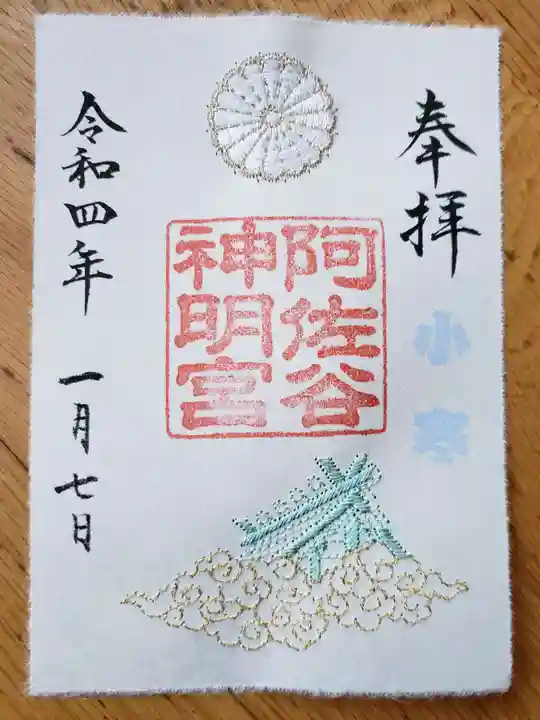 奉拝
小寒
阿佐谷
神明宮
令和四年 一月七日